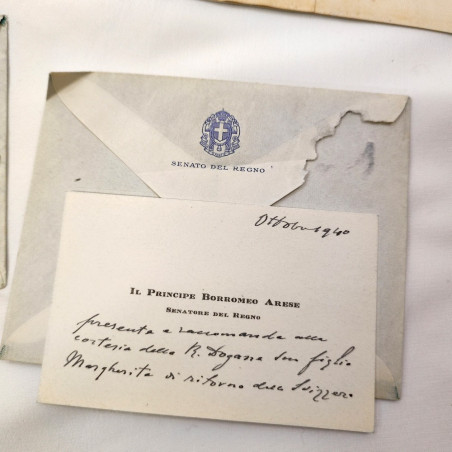 SENATO DEL REGNO
Ottobre 940
IL PRINCIPE BORROMEO ARESE
SENATORE DEL REGNO
presenta e raccomanda alla
cortesia della R. Dogana sua figlia
Margherita di ritorno dalla Svizzera